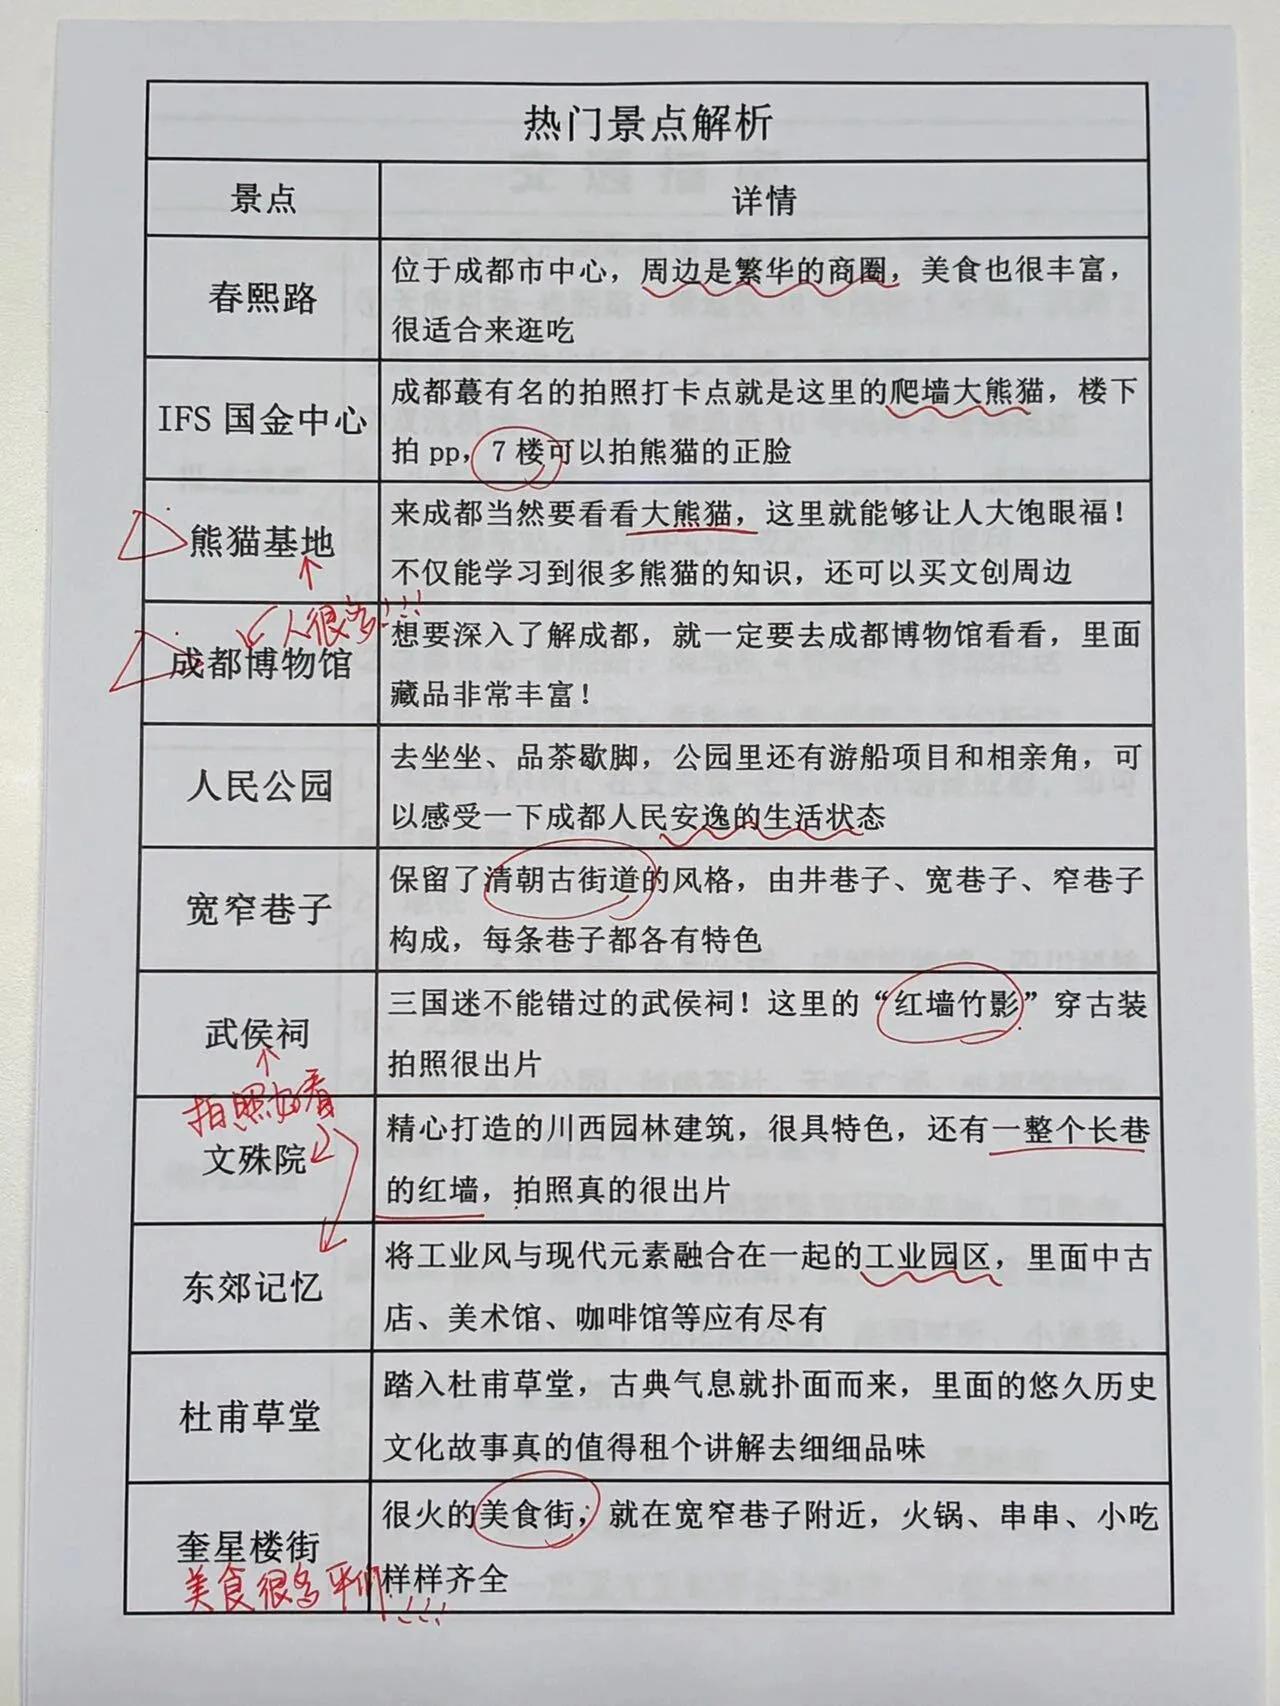 热门景点解析
景点
详情
春熙路
位于成都市中心，周边是繁华的商圈，美食也很丰富，
很适合来逛吃
IFS 国金中心
成都蕞有名的拍照打卡点就是这里的爬墙大熊猫，楼下
拍 pp，7 楼可以拍熊猫的正脸
熊猫基地
来成都当然要看看大熊猫，这里就能够让人大饱眼福！
不仅能学习到很多熊猫的知识，还可以买文创周边
人很多!!!
成都博物馆
想要深入了解成都，就一定要去成都博物馆看看，里面
藏品非常丰富！
人民公园
去坐坐、品茶歇脚，公园里还有游船项目和相亲角，可
以感受一下成都人民安逸的生活状态
宽窄巷子
保留了清朝古街道的风格，由井巷子、宽巷子、窄巷子
构成，每条巷子都各有特色
武侯祠
三国迷不能错过的武侯祠！这里的“红墙竹影”穿古装
拍照很出片
拍照好看
文殊院
精心打造的川西园林建筑，很具特色，还有一整个长巷
的红墙，拍照真的很出片
东郊记忆
将工业风与现代元素融合在一起的工业园区，里面中古
店、美术馆、咖啡馆等应有尽有
杜甫草堂
踏入杜甫草堂，古典气息就扑面而来，里面的悠久历史
文化故事真的值得租个讲解去细细品味
奎星楼街
很火的美食街，就在宽窄巷子附近，火锅、串串、小吃
样样齐全
美食很多